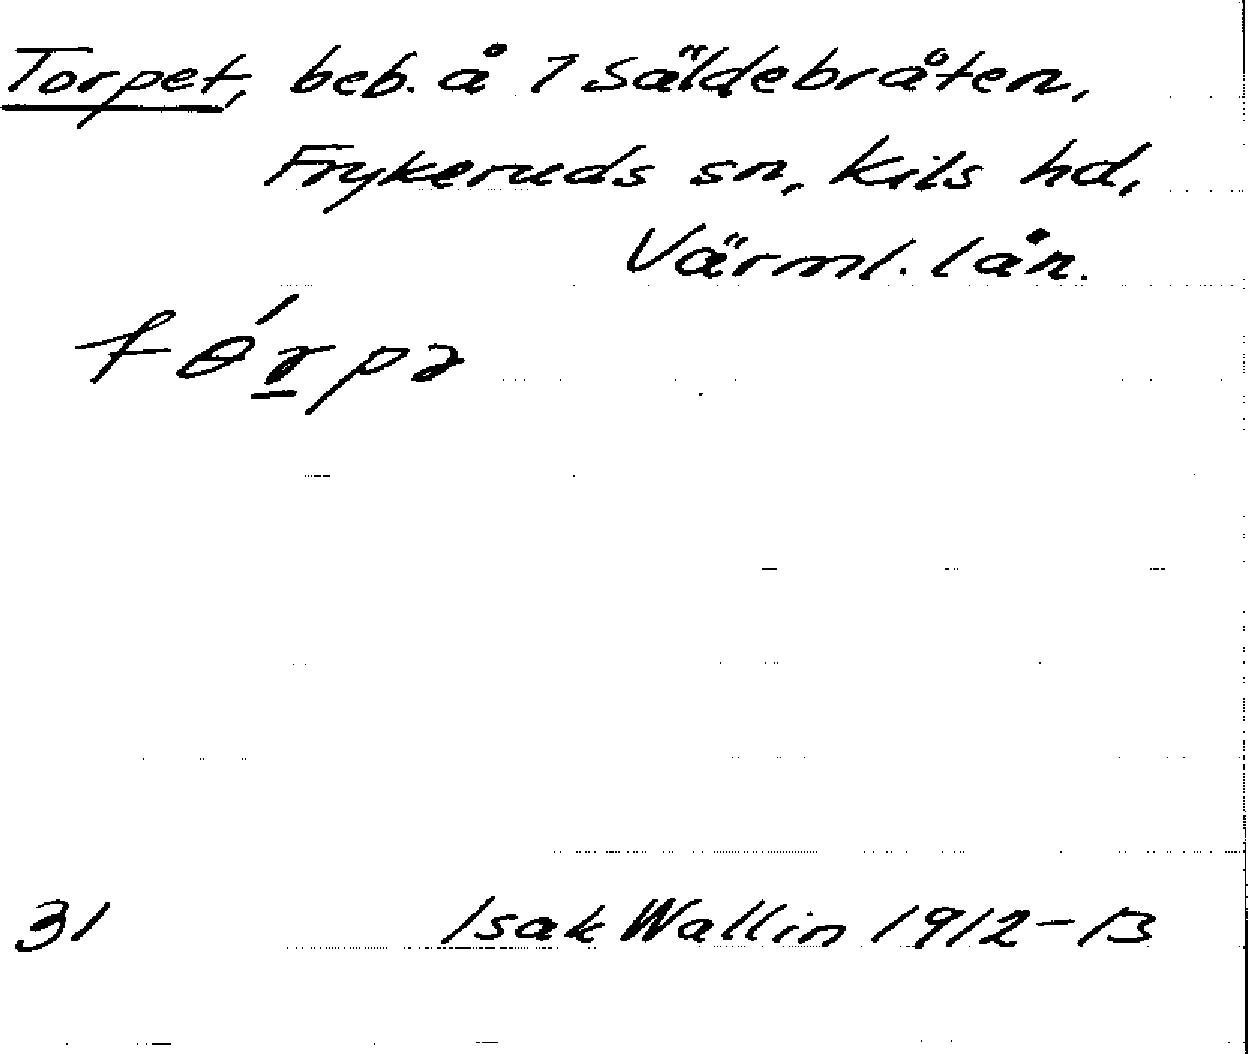 Torpet, beb. å 1 Säldebråten,
Frykeruds sn, Kils hd,
Värml. län.
tɵ́r̲pə
31 Isak Wallin 1912-13